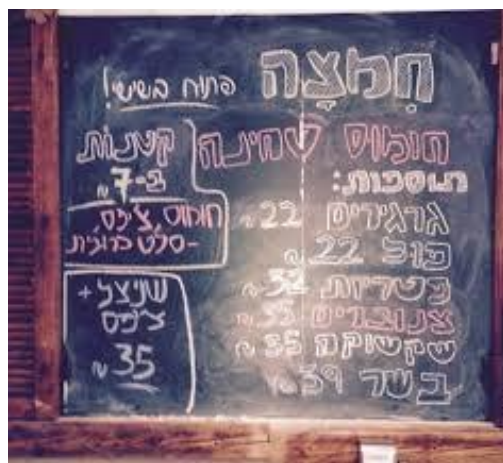 חִמְצָה
פתוח בשישי!
חומוס טחינה
תוספות:
גרגירים 22 ₪
פול 22 ₪
פטריות
צנוברים 35 ₪
שקשוקה 35 ₪
בשר 39 ₪
קטנות
ב-7 ₪
חומוס, צ'יפס,
שניצל +
צ'יפס
35 ₪